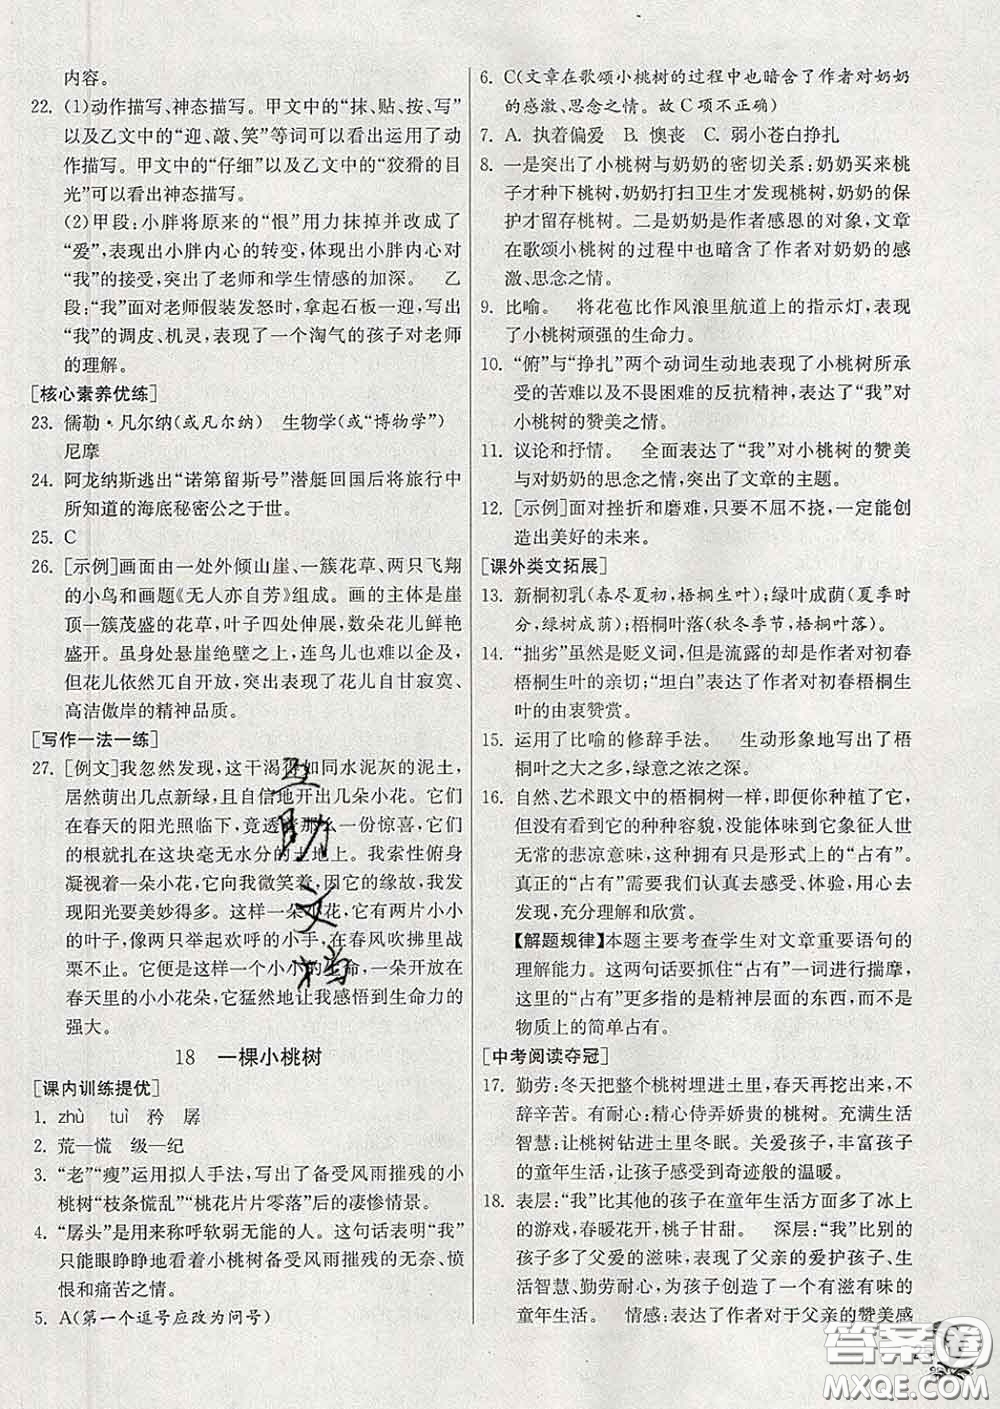 内容。
22. (1)动作描写、神态描写。甲文中的“抹、贴、按、写”
以及乙文中的“迎、敲、笑”等词可以看出运用了动
作描写。甲文中的“仔细”以及乙文中的“狡猾的目
光”可以看出神态描写。
(2)甲段:小胖将原来的“恨”用力抹掉并改成了
“爱”,表现出小胖内心的转变,体现出小胖内心对
“我”的接受,突出了老师和学生情感的加深。 乙
段:“我”面对老师假装发怒时,拿起石板一迎,写出
“我”的调皮、机灵,表现了一个淘气的孩子对老师
的理解。
[核心素养优练]
23. 儒勒·凡尔纳(或凡尔纳) 生物学(或“博物学”)
尼摩
24. 阿龙纳斯逃出“诺第留斯号”潜艇回国后将旅行中
所知道的海底秘密公之于世。
25. C
26. [示例]画面由一处外倾山崖、一簇花草、两只飞翔
的小鸟和画题《无人亦自芳》组成。画的主体是崖
顶一簇茂盛的花草,叶子四处伸展,数朵花儿鲜艳
盛开。虽身处悬崖绝壁之上,连鸟儿也难以企及,但
但花儿依然兀自开放,突出表现了花儿自甘寂寞、
高洁傲岸的精神品质。
[写作一法一练]
27. [例文]我忽然发现,这干渴得如同水泥灰的泥土,
居然萌出几点新绿,且自信地开出几朵小花。它们
在春天的阳光照临下,竟透着那么一份惊喜,它们
的根就扎在这块毫无水分的土地上。我索性俯身
凝视着一朵小花,它向我微笑着,因它的缘故,我发
现阳光要美妙得多。这样一朵小花,它有两片小小
的叶子,像两只举起欢呼的小手,在春风吹拂里战
栗不止。它便是这样一个小小的生命,一朵开放在
春天里的小小花朵,它猛然地让我感悟到生命力的
强大。
18 一棵小桃树
[课内训练提优]
1. zhù tuì 矜 孱
2. 荒—慌 级—纪
3. “老”“瘦”运用拟人手法,写出了备受风雨摧残的小
桃树“枝条慌乱”“桃花片片零落”后的凄惨情景。
4. “孱头”是用来称呼软弱无能的人。这句话表明“我”
只能眼睁睁地看着小桃树备受风雨摧残的无奈、愤
恨和痛苦之情。
5. A(第一个逗号应改为问号)
6. C(文章在歌颂小桃树的过程中也暗含了作者对奶奶
的感激、思念之情。故C项不正确)
7. A. 执着偏爱 B. 懊丧 C. 弱小苍白挣扎
8. 一是突出了小桃树与奶奶的密切关系:奶奶买来桃
子才种下桃树,奶奶打扫卫生才发现桃树,奶奶的保
护才留存桃树。二是奶奶是作者感恩的对象,文章
在歌颂小桃树的过程中也暗含了作者对奶奶的感
激、思念之情。
9. 比喻。 将花苞比作风浪里航道上的指示灯,表现
了小桃树顽强的生命力。
10. “俯”与“挣扎”两个动词生动地表现了小桃树所承
受的苦难以及不畏困难的反抗精神,表达了“我”对
小桃树的赞美之情。
11. 议论和抒情。 全面表达了“我”对小桃树的赞美
与对奶奶的思念之情,突出了文章的主题。
12. [示例]面对挫折和磨难,只要不屈不挠,一定能创
造出美好的未来。
[课外类文拓展]
13. 新桐初乳(春尽夏初,梧桐生叶);绿叶成荫(夏季时
分,绿树成荫);梧桐叶落(秋冬季节,梧桐叶落)。
14. “拙劣”虽然是贬义词,但是流露的却是作者对初春
梧桐生叶的亲切;“坦白”表达了作者对初春梧桐生
叶的由衷赞赏。
15. 运用了比喻的修辞手法。 生动形象地写出了梧
桐叶之大之多,绿意之浓之深。
16. 自然、艺术跟文中的梧桐树一样,即便你种植了它,
但没有看到它的种种容貌,没能体味到它象征人世
无常的悲凉意味,这种拥有只是形式上的“占有”。
真正的“占有”需要我们认真去感受、体验,用心去
发现,充分理解和欣赏。
【解题规律】本题主要考查学生对文章重要语句的
理解能力。这两句话要抓住“占有”一词进行揣摩,
这里的“占有”更多指的是精神层面的东西,而不是
物质上的简单占有。
[中考阅读夺冠]
17. 勤劳:冬天把整个桃树埋进土里,春天再挖出来,不
辞辛苦。有耐心:精心侍弄娇贵的桃树。充满生活
智慧:让桃树钻进土里冬眠。关爱孩子,丰富孩子
的童年生活,让孩子感受到奇迹般的温暖。
18. 表层:“我”比其他的孩子在童年生活方面多了冰上
的游戏,春暖花开,桃子甘甜。 深层:“我”比别的
孩子多了父爱的滋味,表现了父亲的爱护孩子、
生活智慧、勤劳耐心,给孩子创造了一个有滋有味的
童年生活。 情感:表达了作者对于父亲的赞美感
互助文档
答案圈
MXQE.COM